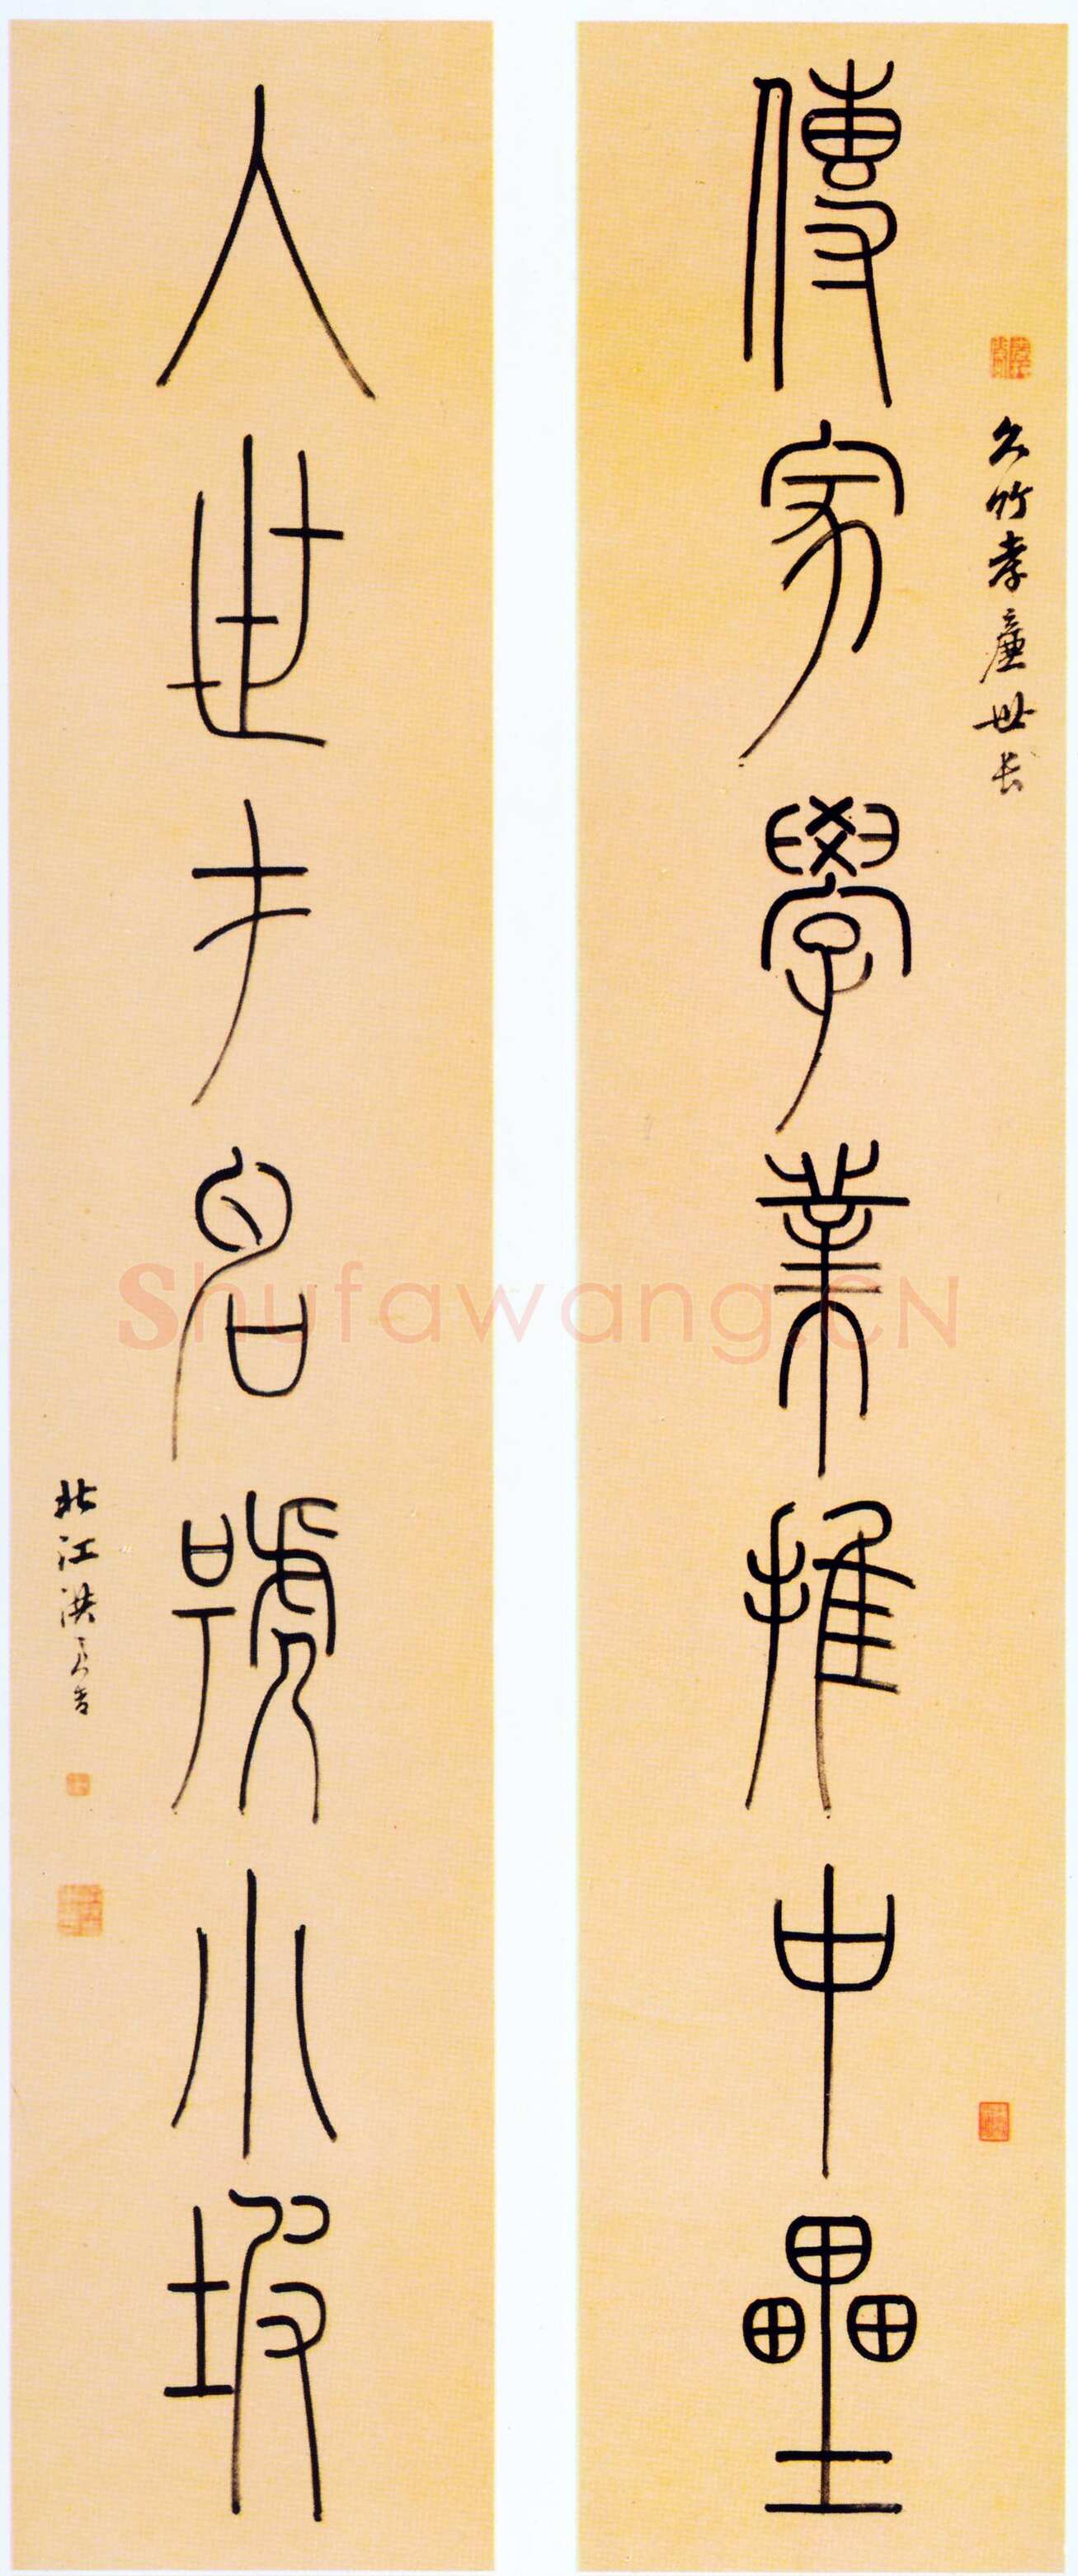 傳家學業推中壘
久竹孝廉世長
入世才名號小坡
北江洪亮吉
Shufawang.CN